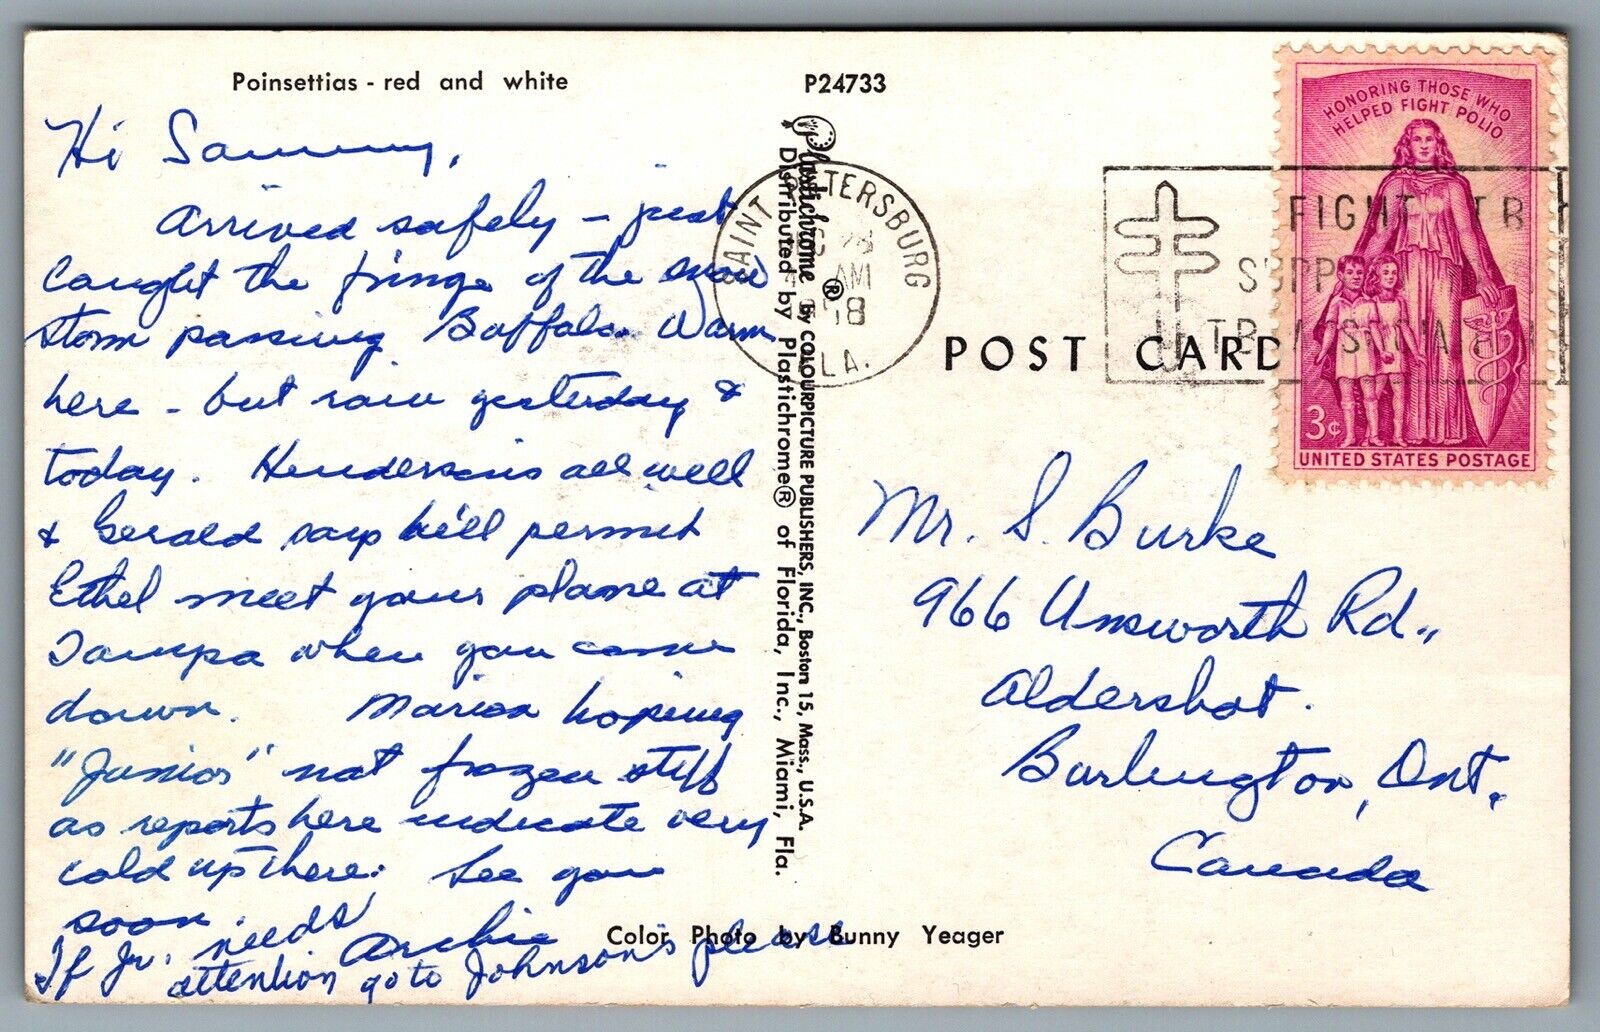 Poinsettias - red and white
P24733
Hi Sammy,
Arrived safely – just
caught the fringe of the snow
storm passing Buffalo. Warm
here – but rain yesterday &
today. Hendersons all well
& Gerald says he'll permit
Ethel meet your plane at
Tampa when you come
down. Marion hoping
"Junior" not frozen stiff
as reports here indicate very
cold up there. See you
soon.
Archie
If Jr. needs
attention go to Johnson's please
Plastichrome ® by COLOURPICTURE PUBLISHERS, INC., Boston 15, Mass., U.S.A.
Distributed by Plastichrome® of Florida, Inc., Miami, Fla.
Color Photo by Bunny Yeager
SAINT PETERSBURG
AM
FLA.
FIGHT TB
HONORING THOSE WHO
HELPED FIGHT POLIO
3¢
UNITED STATES POSTAGE
POST CARD
Mr. S. Burke
966 Unsworth Rd.,
Aldershot.
Burlington, Ont.
Canada